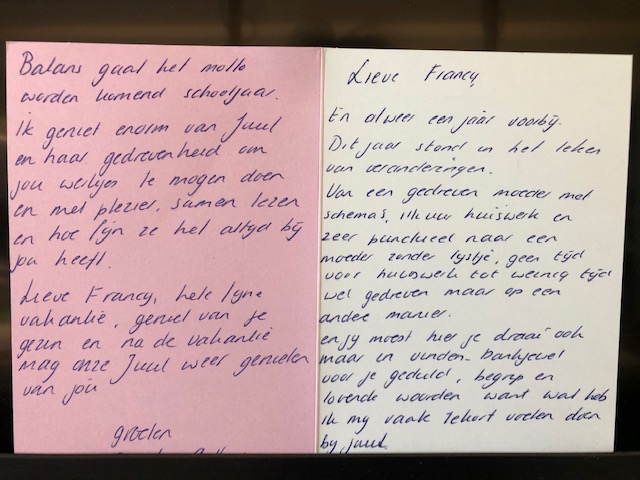 Balans gaat het motto
worden komend schooljaar.
Ik geniet enorm van Juul
en haar gedrevenheid om
jou werkjes te mogen doen
en met plezier. samen lezen
en hoe fijn ze het altyd bij
jou heeft.
Lieve Francy, hele fijne
vakantie, geniet van je
gezin en na de vakantie
mag onze Juul weer genieten
van jou
groeten
Lieve Francy,
En alweer een jaar voorbij.
Dit jaar stond in het teken
van veranderingen.
Van een gedreven moeder met
schema's, elk uur huiswerk en
zeer punctueel naar een
moeder zonder lystje, geen tijd
voor huiswerk tot weinig tijd
wel gedreven maar op een
andere manier.
en jy moest hier je draai ook
maar in vinden. Dankjewel
voor je geduld, begrip en
lovende woorden want wat heb
ik my vaak tekort voelen doen
by Juul